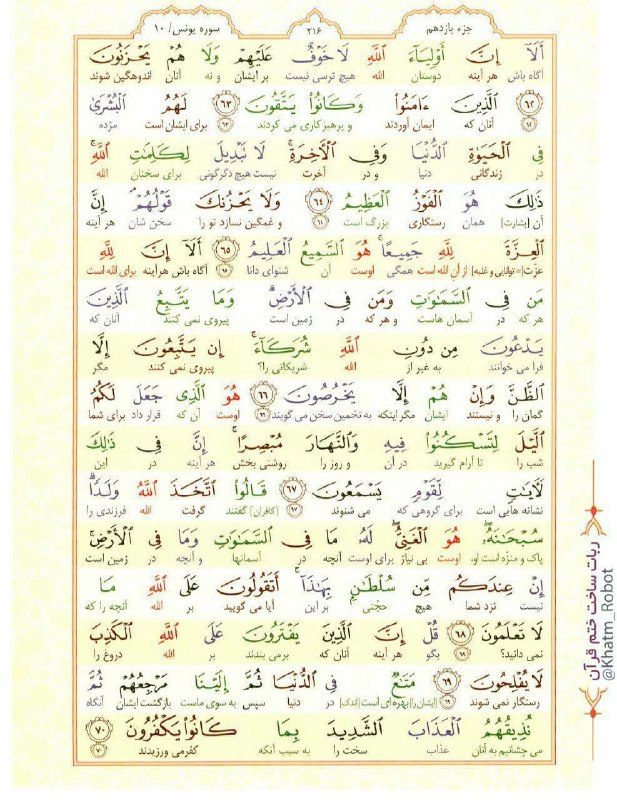 جزء یازدهم ۲۱۶ سوره یونس/ ۱۰
أَلَآ إِنَّ أَوْلِيَآءَ ٱللَّهِ لَا خَوْفٌ عَلَيْهِمْ وَلَا هُمْ يَحْزَنُونَ
آگاه باش هر آینه دوستان الله هیچ ترسی نیست بر ایشان و نه آنان اندوهگین شوند
٦٢ ٱلَّذِينَ ءَامَنُوا۟ وَكَانُوا۟ يَتَّقُونَ ٦٣ لَهُمُ ٱلْبُشْرَىٰ
٦٢ آنان که ایمان آوردند و پرهیزکاری می کردند ٦٣ برای ایشان است مژده
فِى ٱلْحَيَوٰةِ ٱلدُّنْيَا وَفِى ٱلْـَٔاخِرَةِ ۚ لَا تَبْدِيلَ لِكَلِمَـٰتِ ٱللَّهِ ۚ
در زندگانی دنیا و در آخرت نیست هیچ دگرگونی برای سخنان الله
ذَٰلِكَ هُوَ ٱلْفَوْزُ ٱلْعَظِيمُ ٦٤ وَلَا يَحْزُنكَ قَوْلُهُمْ ۘ إِنَّ
آن [بشارت] همان رستگاری بزرگ است ٦٤ و غمگین نسازد تو را سخن شان هر آینه
ٱلْعِزَّةَ لِلَّهِ جَمِيعًا ۚ هُوَ ٱلسَّمِيعُ ٱلْعَلِيمُ ٦٥ أَلَآ إِنَّ لِلَّهِ
عزّت[=توانایی و غلبه] از آن الله است همگی اوست آن شنوای دانا ٦٥ آگاه باش هر آینه برای الله است
مَن فِى ٱلسَّمَـٰوَٰتِ وَمَن فِى ٱلْأَرْضِ ۗ وَمَا يَتَّبِعُ ٱلَّذِينَ
هر که در آسمان هاست و هر که در زمین است پیروی نمی کنند آنان که
يَدْعُونَ مِن دُونِ ٱللَّهِ شُرَكَآءَ ۚ إِن يَتَّبِعُونَ إِلَّا
فرا می خوانند به غیر از الله شریکانی را؟ پیروی نمی کنند مگر
ٱلظَّنَّ وَإِنْ هُمْ إِلَّا يَخْرُصُونَ ٦٦ هُوَ ٱلَّذِى جَعَلَ لَكُمُ
گمان را و نیستند ایشان مگر اینکه به تخمین سخن می گویند ٦٦ اوست آن که قرار داد برای شما
ٱلَّيْلَ لِتَسْكُنُوا۟ فِيهِ وَٱلنَّهَارَ مُبْصِرًا ۚ إِنَّ فِى ذَٰلِكَ
شب را تا آرام گیرید در آن و روز را روشنی بخش هر آینه در این
لَـَٔايَـٰتٍ لِّقَوْمٍ يَسْمَعُونَ ٦٧ قَالُوا۟ ٱتَّخَذَ ٱللَّهُ وَلَدًا ۗ
نشانه هایی است برای گروهی که می شنوند ٦٧ [کافران] گفتند گرفت الله فرزندی را
سُبْحَـٰنَهُۥ ۖ هُوَ ٱلْغَنِىُّ ۖ لَهُۥ مَا فِى ٱلسَّمَـٰوَٰتِ وَمَا فِى ٱلْأَرْضِ ۚ
پاک و منزّه است او، اوست بی نیاز برای اوست آنچه در آسمانها و آنچه در زمین است
إِنْ عِندَكُم مِّن سُلْطَـٰنٍۭ بِهَـٰذَآ ۚ أَتَقُولُونَ عَلَى ٱللَّهِ مَا
نیست نزد شما هیچ حجّتی بر این آیا می گویید بر الله آنچه را که
لَا تَعْلَمُونَ ٦٨ قُلْ إِنَّ ٱلَّذِينَ يَفْتَرُونَ عَلَى ٱللَّهِ ٱلْكَذِبَ
نمی دانید؟ ٦٨ بگو هر آینه آنان که برمی بندند بر الله دروغ را
لَا يُفْلِحُونَ ٦٩ مَتَـٰعٌ فِى ٱلدُّنْيَا ثُمَّ إِلَيْنَا مَرْجِعُهُمْ ثُمَّ
رستگار نمی شوند ٦٩ [ایشان را] بهره ای است [اندک] در دنیا سپس به سوی ماست بازگشت ایشان آنگاه
نُذِيقُهُمُ ٱلْعَذَابَ ٱلشَّدِيدَ بِمَا كَانُوا۟ يَكْفُرُونَ ٧٠
می چشانیم به آنان عذاب سخت را به سبب آنکه کفر می ورزیدند ٧٠
ربات ساخت ختم قرآن
@Khatm_Robot